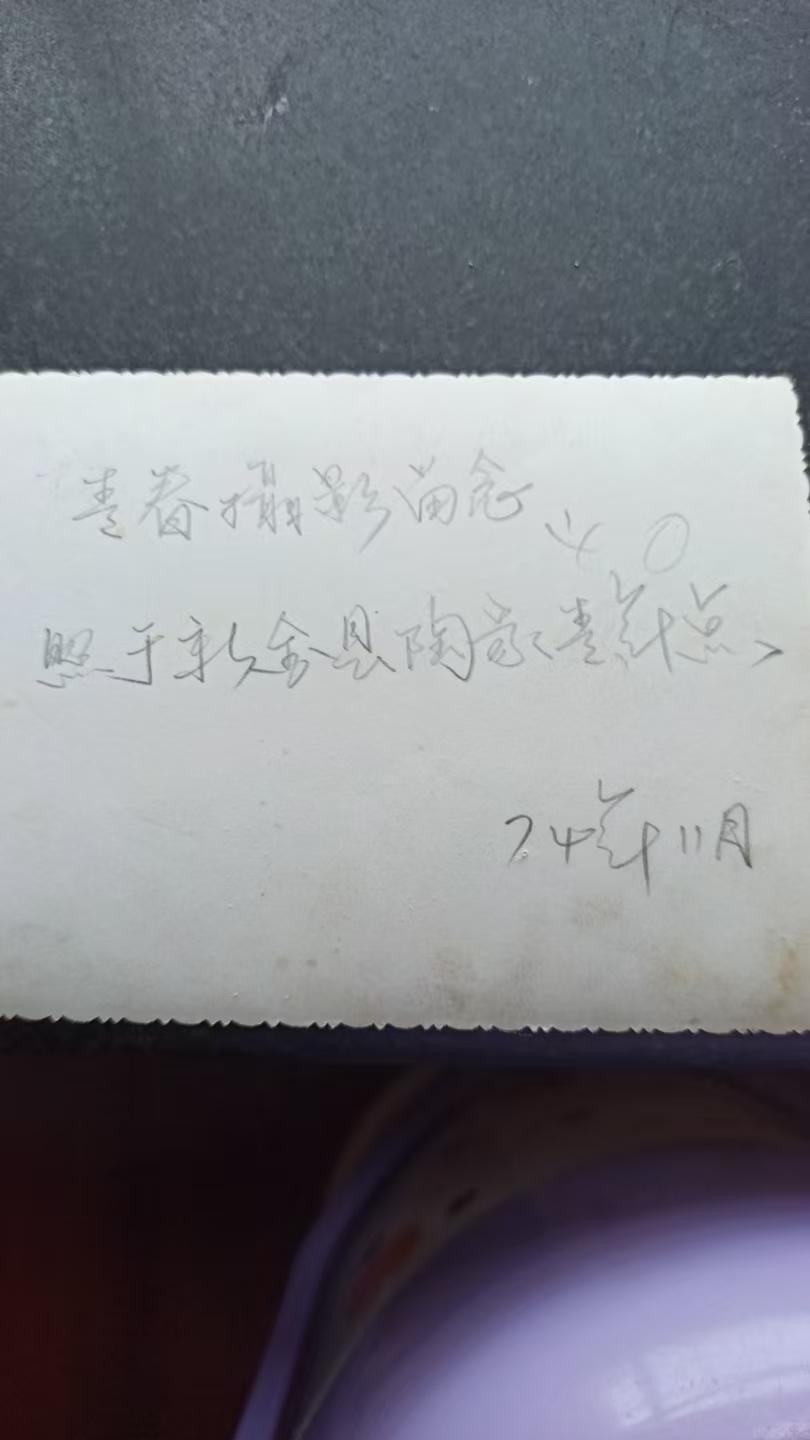 青春攝影留念
照于新金县陶家青年点
74年11月